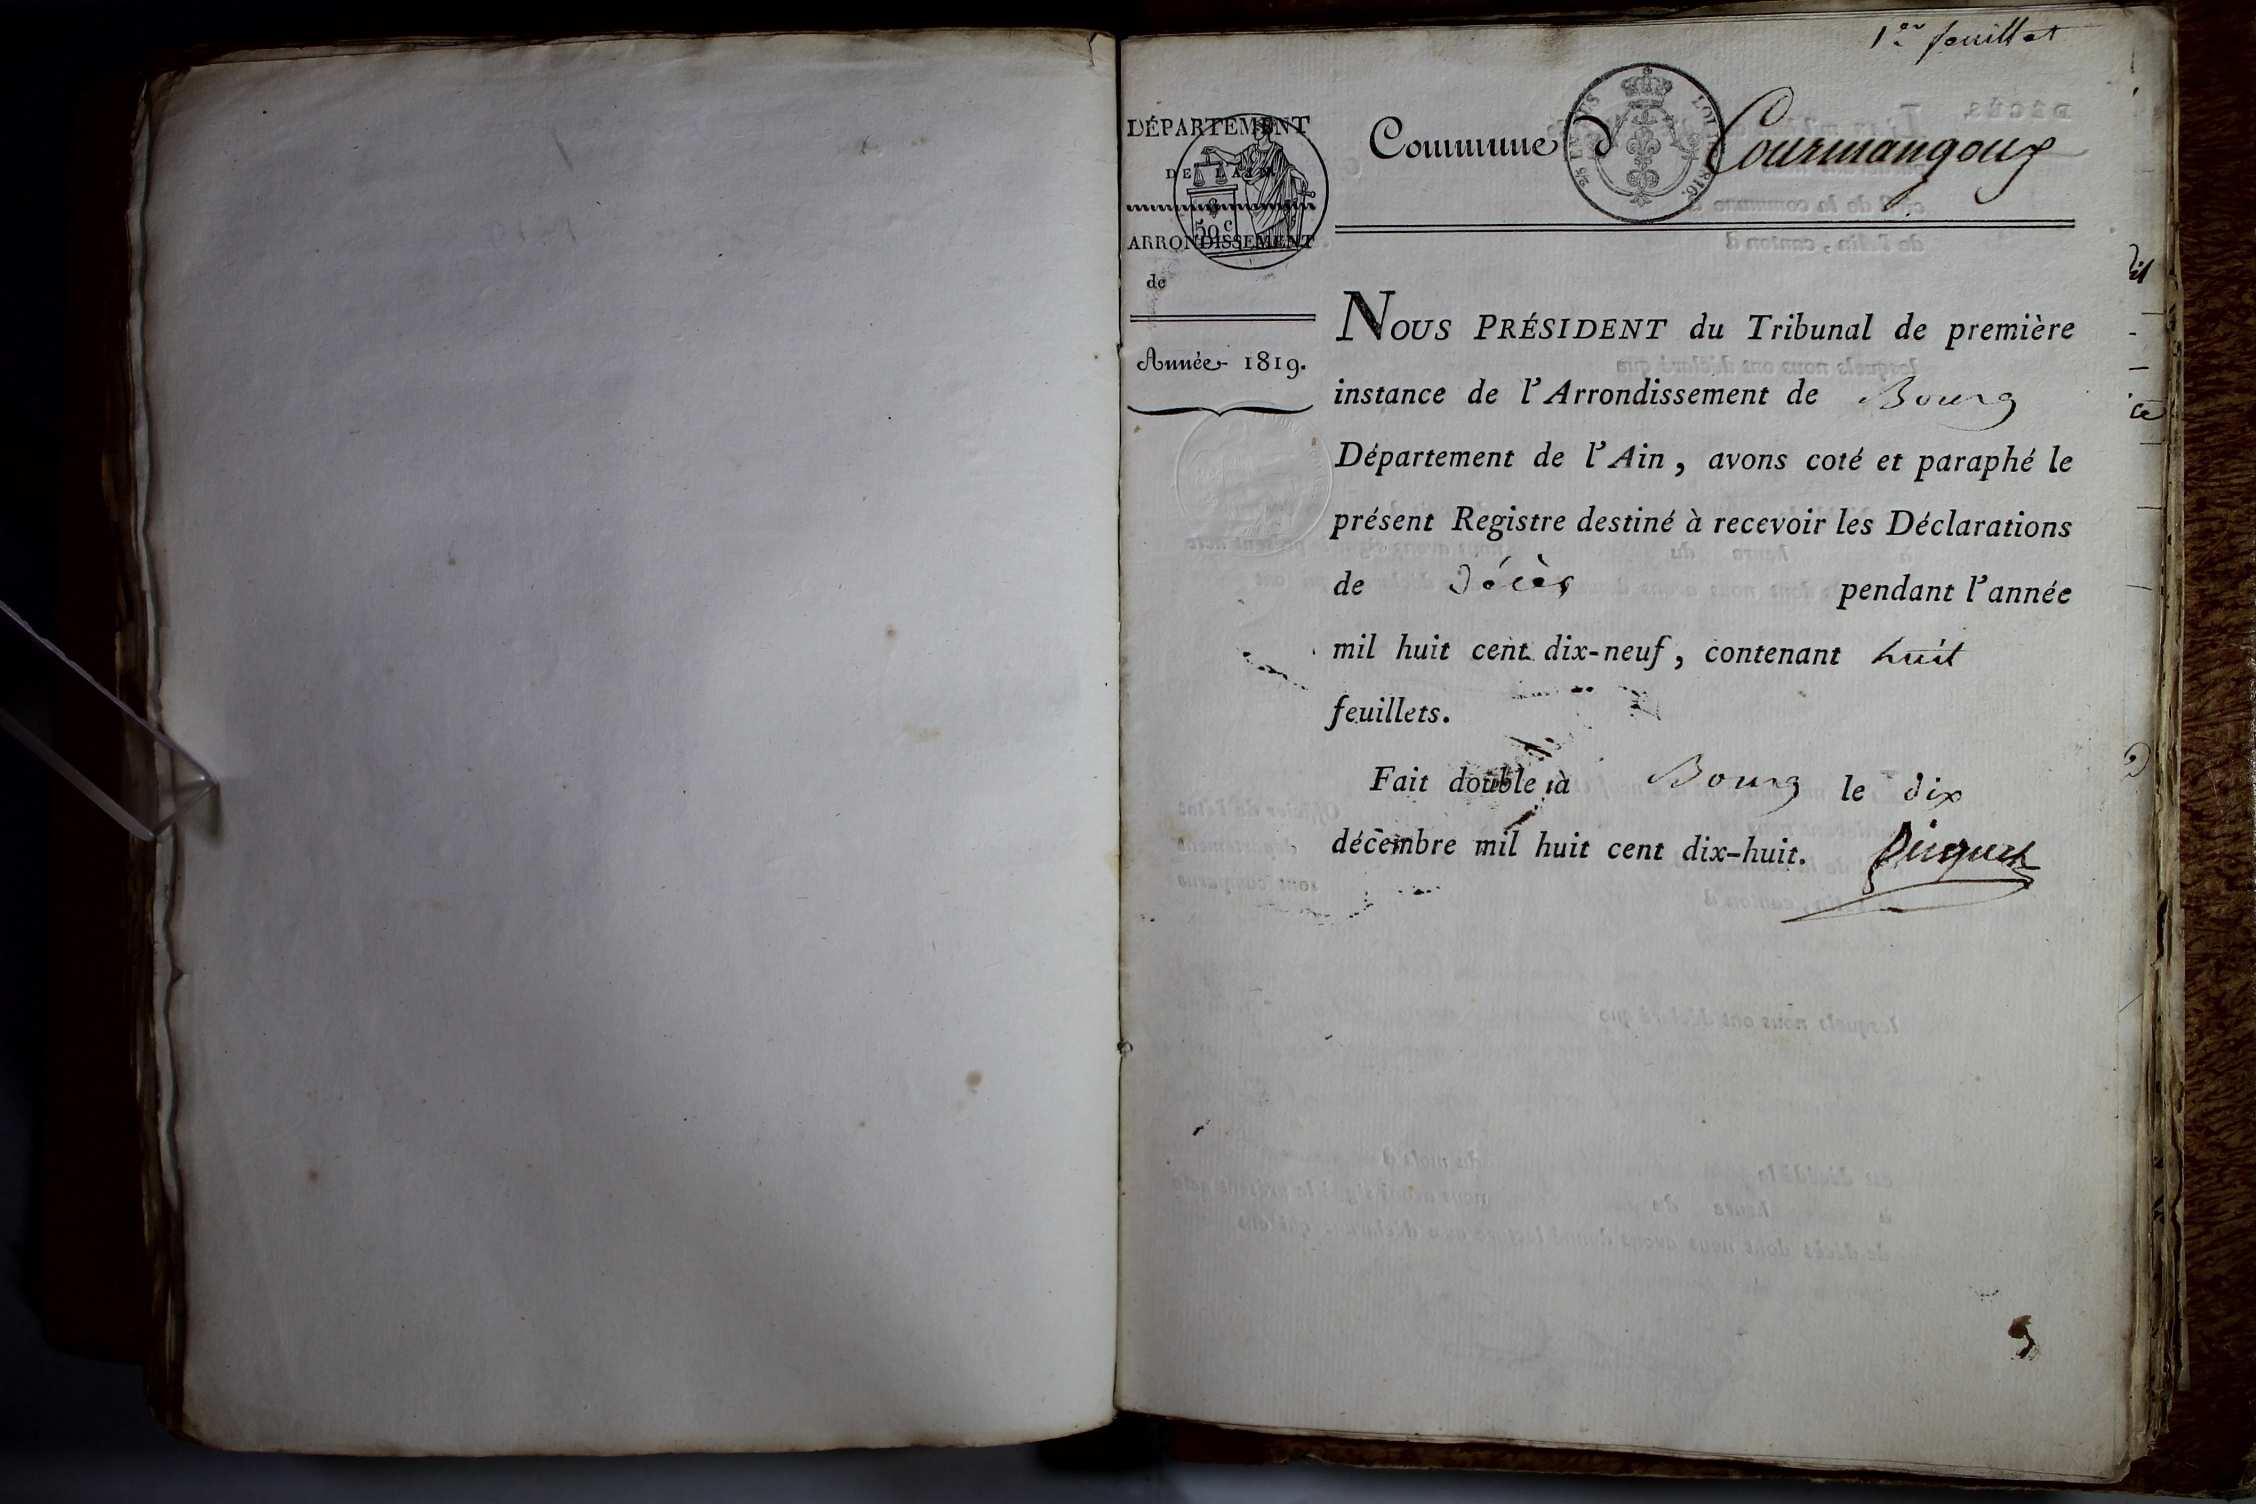 1er feuillet
DÉPARTEMENT
DE L'AIN.
50 c
ARRONDISSEMENT
de
Année 1819.
Commune d Courmangoux
NOUS PRÉSIDENT du Tribunal de première
instance de l'Arrondissement de Bourg
Département de l'Ain, avons coté et paraphé le
présent Registre destiné à recevoir les Déclarations
de Décès pendant l'année
mil huit cent dix-neuf, contenant huit
feuillets.
Fait double à Bourg le dix
décembre mil huit cent dix-huit.